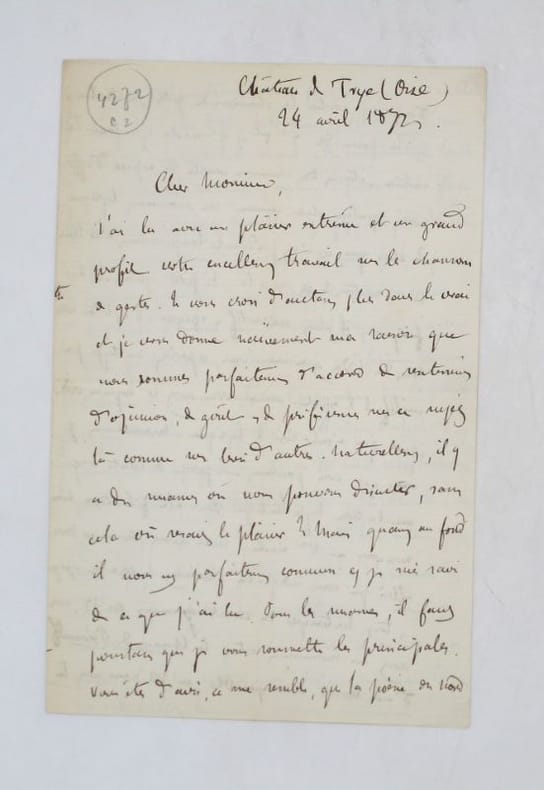 4272
c2
Château de Trye (Oise)
24 avril 1872.
Cher Monsieur,
J'ai lu avec un plaisir extrême et un grand
profit votre excellent travail sur les chansons
de gestes. Je vous crois d'autant plus dans le vrai
et je vous donne naïvement ma raison que
nous sommes parfaitement d'accord de sentiments
d'opinion, de goût et de préférences sur ce sujet
là comme sur bien d'autres. Naturellement, il y
a des nuances où nous pouvons discuter, sans
cela où serait le plaisir ? Mais quant au fond
il nous est parfaitement commun et je suis ravi
de ce que j'ai lu. Pour les nuances, il faut
pourtant que je vous soumette les principales.
Vous êtes d'avis, ce me semble, que la poésie du Nord